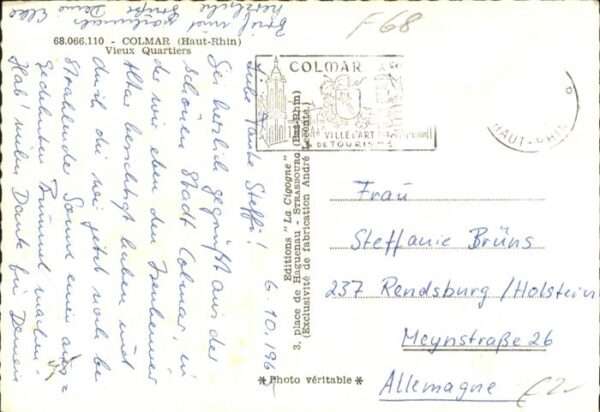 68.066.110 - COLMAR (Haut-Rhin)
Vieux Quartiers
Liebe Tante Steffi! 6.10.196
Sei herzlich gegrüßt aus der
schönen Stadt Colmar, in
der wir eben den Isenheimer
Altar besichtigt haben und
durch die wir jetzt noch bei
strahlender Sonne einen aus=
gedehnten Bummel machen.
Hab' vielen Dank für Deinen
Brief und
herzliche
Grüße
Deine Elke
COLMAR
VILLE D'ART
DE TOURISME
HAUT-RHIN
Editions "La Cigogne"
3, place de Haguenau - STRASBOURG (Bas-Rhin)
(Exclusivité de fabrication André Leconte.)
*Photo véritable*
Frau
Steffanie Brüns
237 Rendsburg/Holstein
Meynstraße 26
Allemagne
F 68